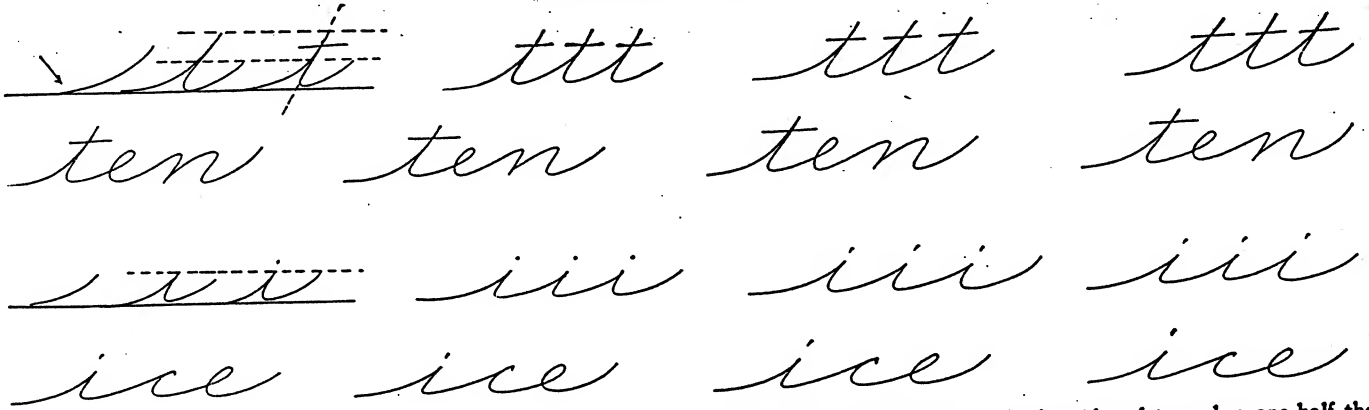 t t ttt ttt ttt
ten ten ten ten
i i iii iii iii
ice ice ice ice
one-half the